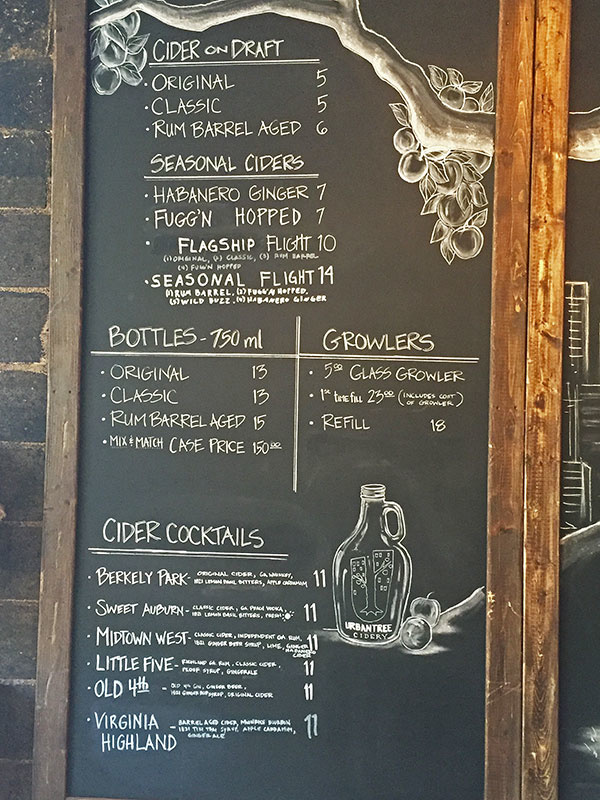 CIDER ON DRAFT
• ORIGINAL 5
• CLASSIC 5
• RUM BARREL AGED 6
SEASONAL CIDERS
• HABANERO GINGER 7
• FUGG'N HOPPED 7
• FLAGSHIP FLIGHT 10
(1) ORIGINAL, (2) CLASSIC, (3) RUM BARREL
(4) FUGG'N HOPPED
• SEASONAL FLIGHT 14
(1) RUM BARREL, (2) FUGG'N HOPPED,
(3) WILD BUZZ, (4) HABANERO GINGER
BOTTLES - 750 ml
• ORIGINAL 13
• CLASSIC 13
• RUM BARREL AGED 15
• MIX & MATCH CASE PRICE 150.00
GROWLERS
• 5.00 GLASS GROWLER
• 1ST TIME FILL 23.00 (INCLUDES COST OF GROWLER)
• REFILL 18
CIDER COCKTAILS
• BERKELY PARK - ORIGINAL CIDER, GA. WHISKEY, 11
1821 LEMON BASIL BITTERS, APPLE CARDAMAM
• SWEET AUBURN - CLASSIC CIDER, GA PEACH VODKA, 11
1821 LEMON BASIL BITTERS, FRESH
• MIDTOWN WEST - CLASSIC CIDER, INDEPENDENT GA. RUM, 11
1821 GINGER BEER SYRUP, LIME, GINGER HABANERO CIDER
• LITTLE FIVE - RICHLAND GA. RUM, CLASSIC CIDER, 11
SYRUP, GINGERALE
• OLD 4th - OLD 4th GIN, GINGER BEER, 11
1821 GINGER SYRUP, ORIGINAL CIDER
• VIRGINIA HIGHLAND - BARREL AGED CIDER, BOURBON 11
1821 SYRUP, APPLE CARDAMAM,
GINGER ALE
URBANTREE
CIDERY